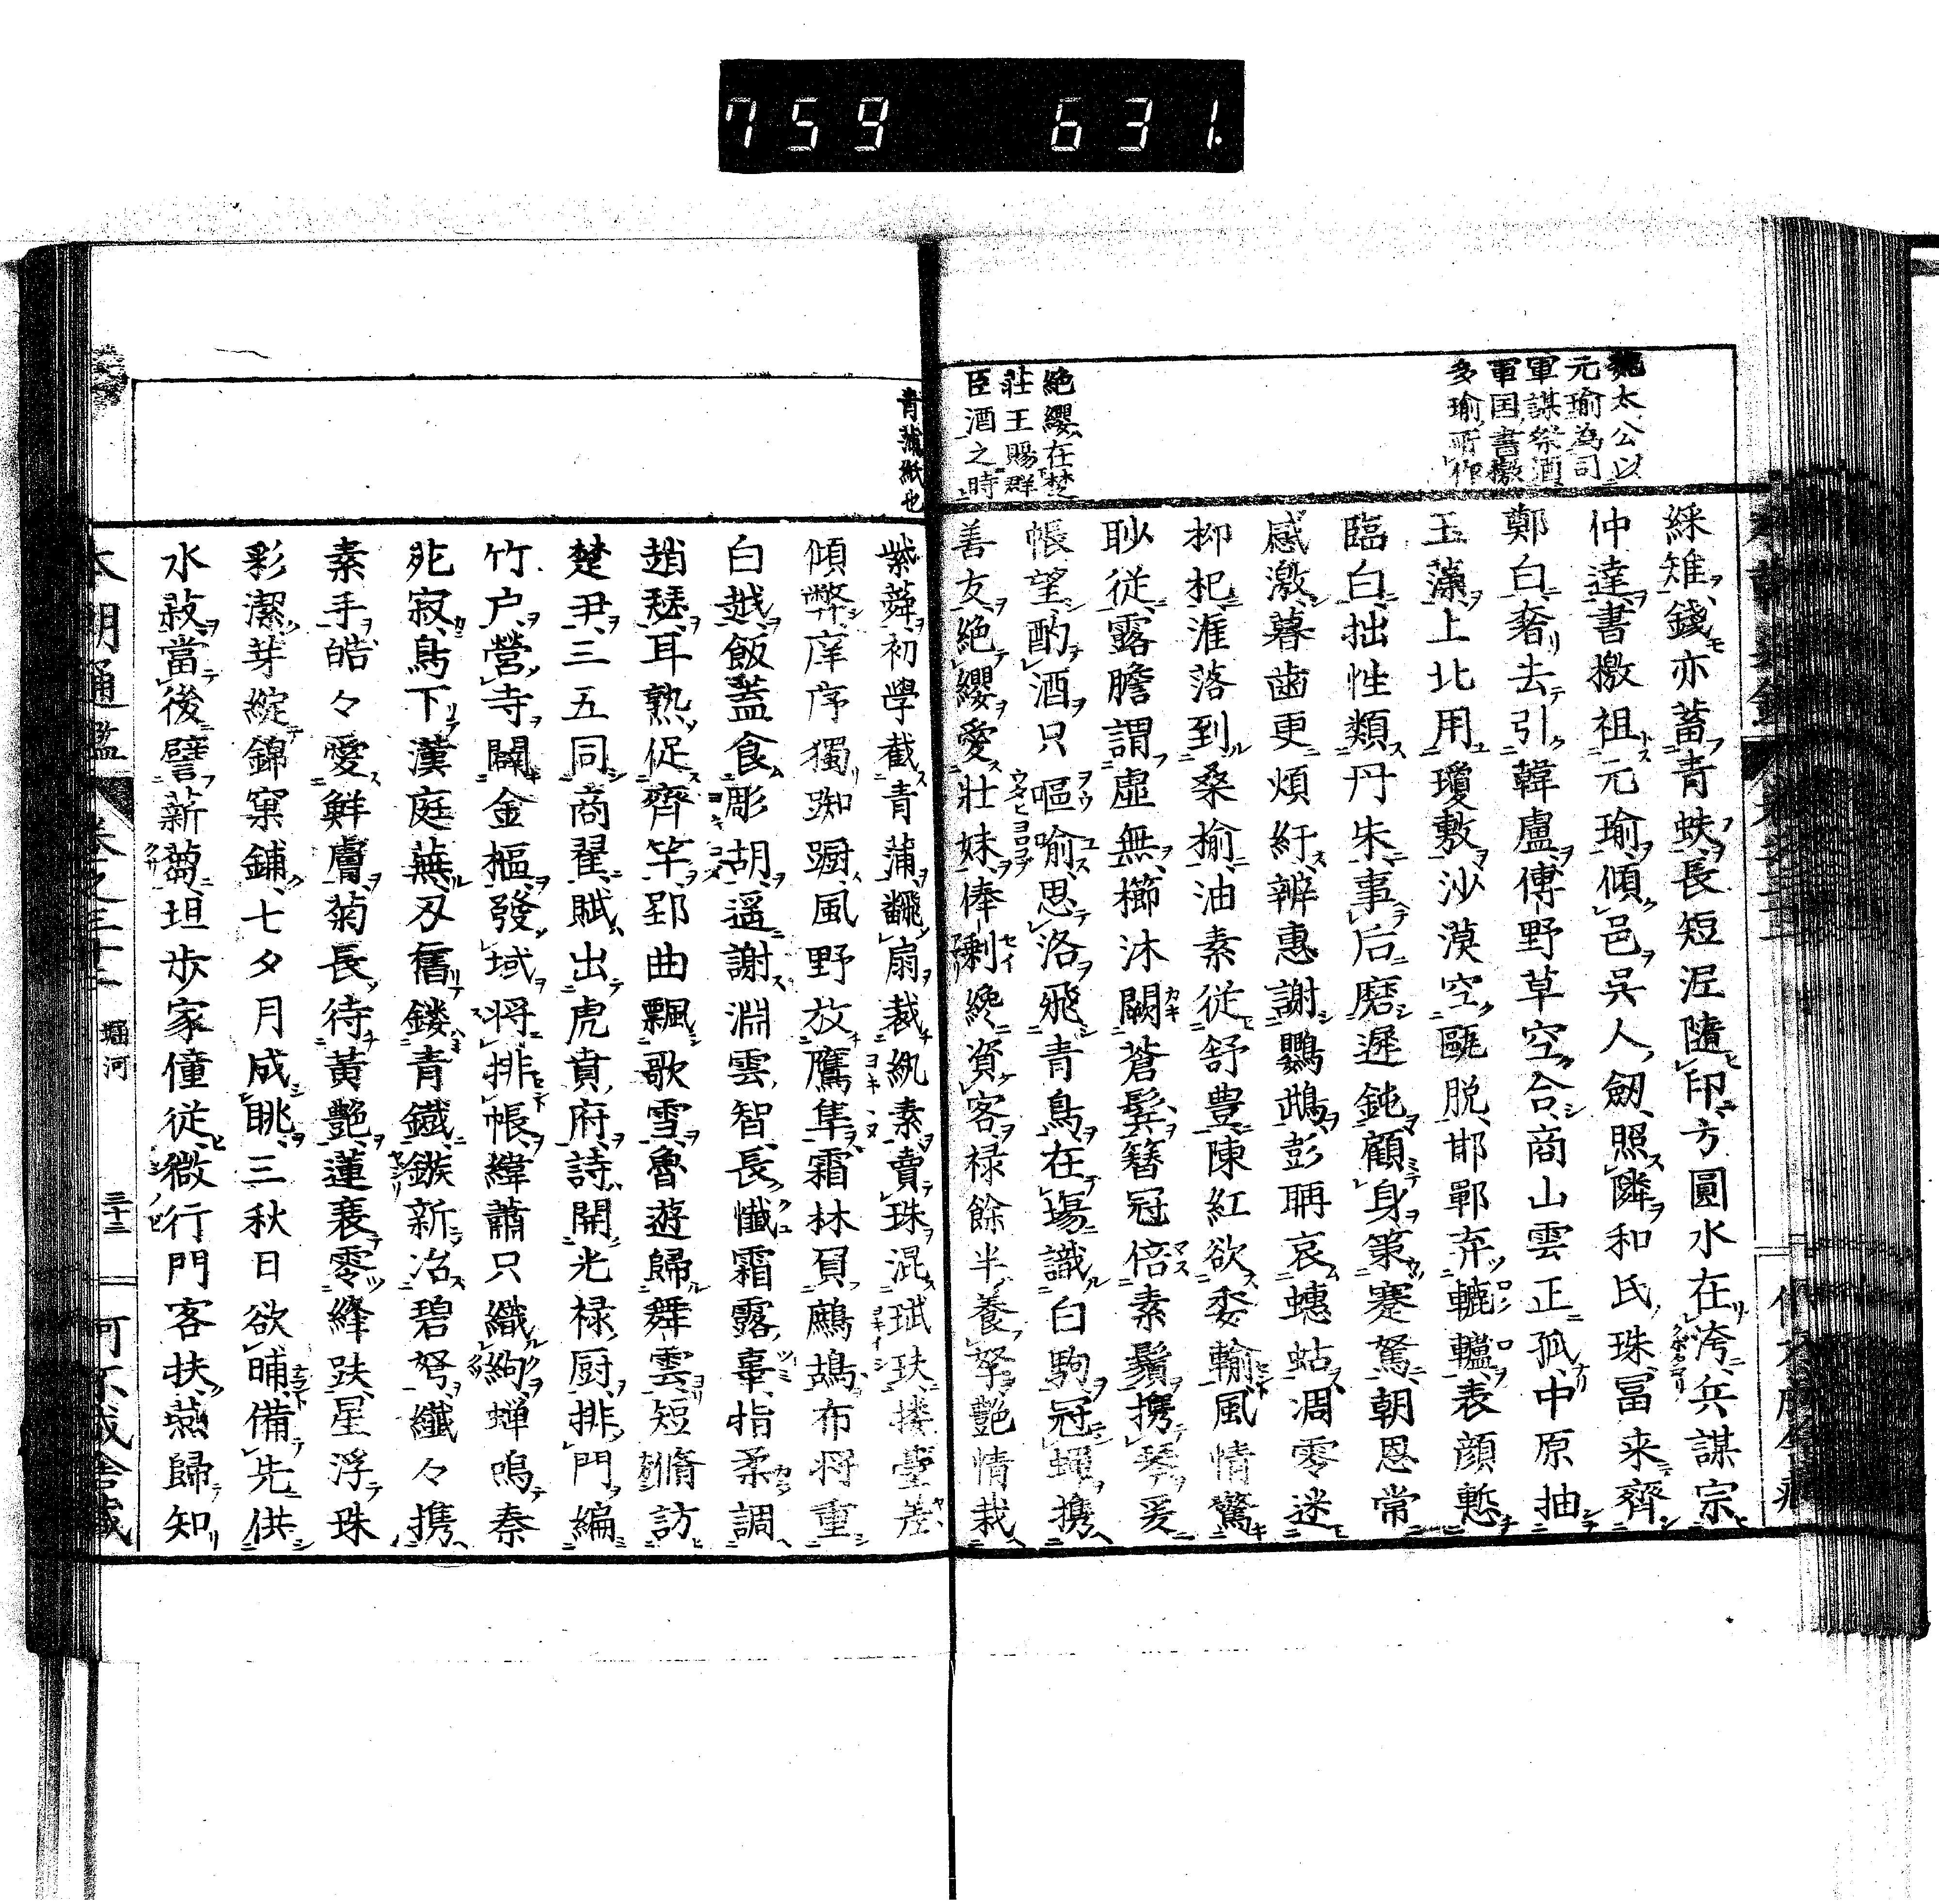 759 631.
太公以
元瑜為司
軍謀祭酒
軍国書檄
多瑜所作
絶纓在楚
荘王賜群
臣酒之時
綵雉錢亦蓄青蚨長短涅隨印方圓水在洿兵謀宗
仲達書檄祖元瑜傾邑呉人劔照隣和氏珠冨来齊
鄭白奢去引韓盧傅野草空合商山雲正孤中原抽
玉藻上北用瓊敷沙漠空甌脱邯鄲弃轆轤表顔慙
臨白拙性類丹朱事后磨遲鈍顧身策蹇駑朝恩常
感激暮齒更煩紆辨惠謝鸚鵡彭聃哀蟪蛄凋零迷
抑杞漼落到桑榆油素従舒豊陳紅欲委輸風情驚
耿従露膽謂虚無櫛沐闕蒼鬓簪冠倍素鬚携琴爰
帳望酌酒只嘔喩思洛飛青鳥在塲識白駒冠蝿携
善友絶纓愛壮妹俸剰纔資客禄餘半養孥艶情裁
青蒲紙也
紫蕣初學截青蒲翻扇裁紈素賣珠混珷玞搂臺差
傾弊庠序獨踟蹰風野放鷹隼霜林買鷓鴣布将重
白越飯蓋食彫胡遥謝淵雲智長懴霜露辜指柔調
趙瑟耳熟促齊竽郢曲飄歌雪魯遊歸舞雲短脩訪
楚尹三五同商翟賦出虎賁府詩開光禄厨排門編
竹户營寺闢金樞發域将排帳緯蕭只織絇蝉鳴秦
苑寂鳥下漢庭蕪刃舊鏤青鐵鏃新冶碧弩纖々携
素手皓々愛鮮膚菊長待黃艶蓮衰零絳趺星浮珠
彩潔芽綻錦窠鋪七夕月成眺三秋日欲晡備先供
水菽當後譬薪蒭坦歩家僮従微行門客扶燕歸知
本朝通鑑 卷之三十二 堀河 三十二